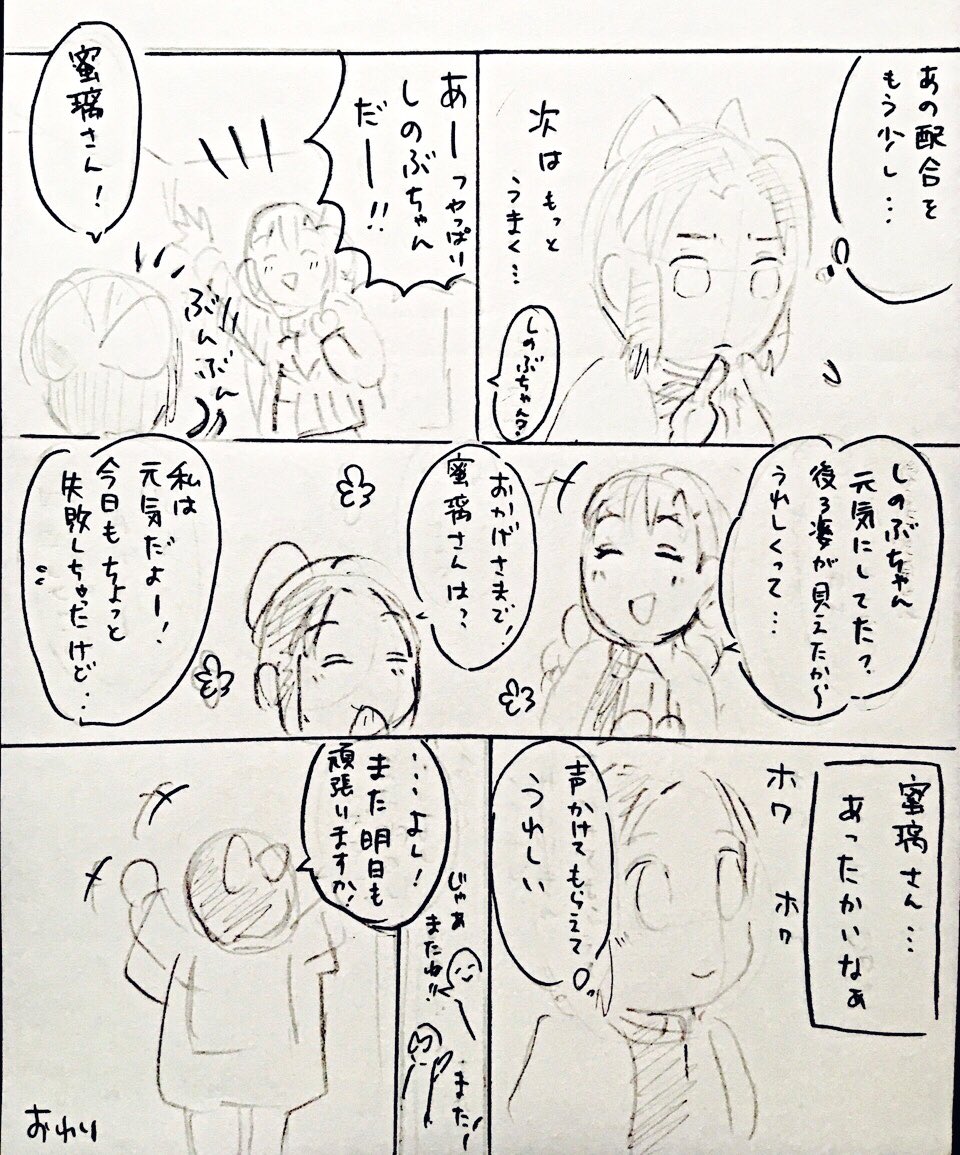 あの配合を
もう少し…
次はもっと
うまく…
しのぶちゃん?
あーっやっぱり
しのぶちゃん
だー!!
蜜璃さん!
ぶんぶん
しのぶちゃん
元気にしてた?
後ろ姿が見えたから
うれしくって…
おかげさまで!
蜜璃さんは?
私は
元気だよー!
今日もちょっと
失敗しちゃったけど…
蜜璃さん…
あったかいなぁ
ホワ
ホワ
声かけてもらえて
うれしい
じゃあ
またね!!
また!
…よし!
また明日も
頑張りますか!
おわり